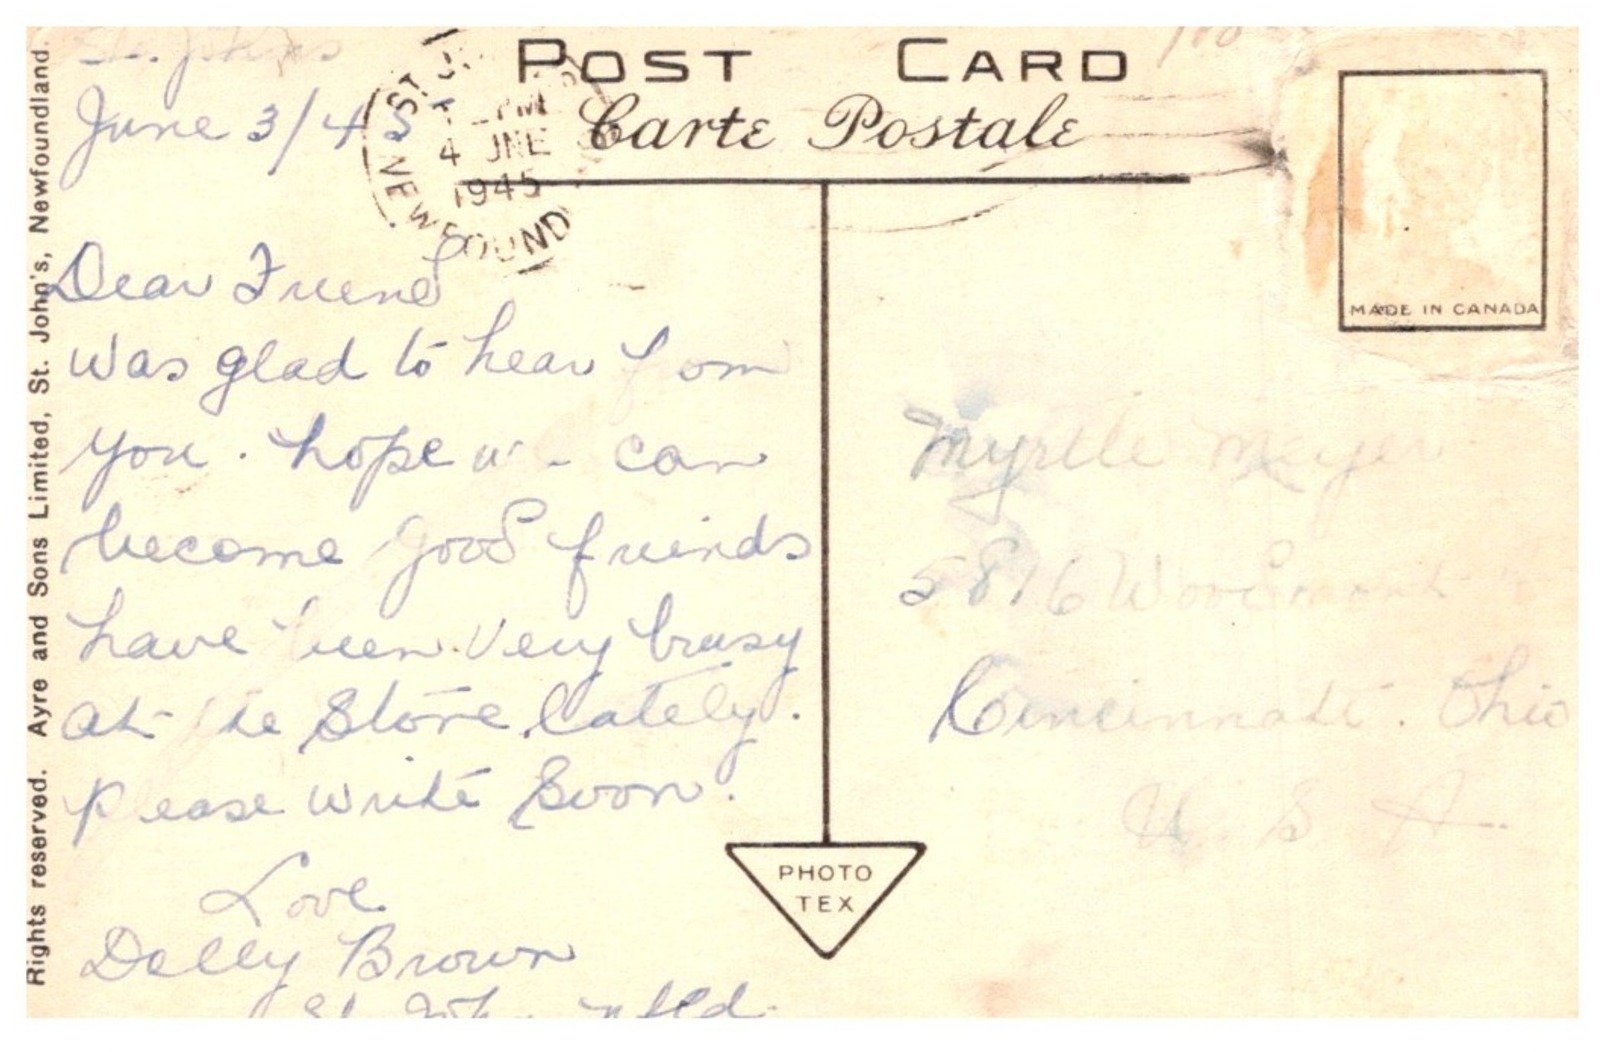 St. Johns
June 3/45
POST CARD
Carte Postale
ST J
PM
4 JNE
1945
NEWFOUND
MADE IN CANADA
Dear Friend
Was glad to hear from
you. hope we can
become good friends
have been very busy
at the Store lately.
please write Soon.
Love
Brown
St. Joh Nfld.
Myrtle Meyer
5816 Woodmont
Cincinnati. Ohio
U. S. A.
PHOTO
TEX
Rights reserved. Ayre and Sons Limited, St. John's, Newfoundland.